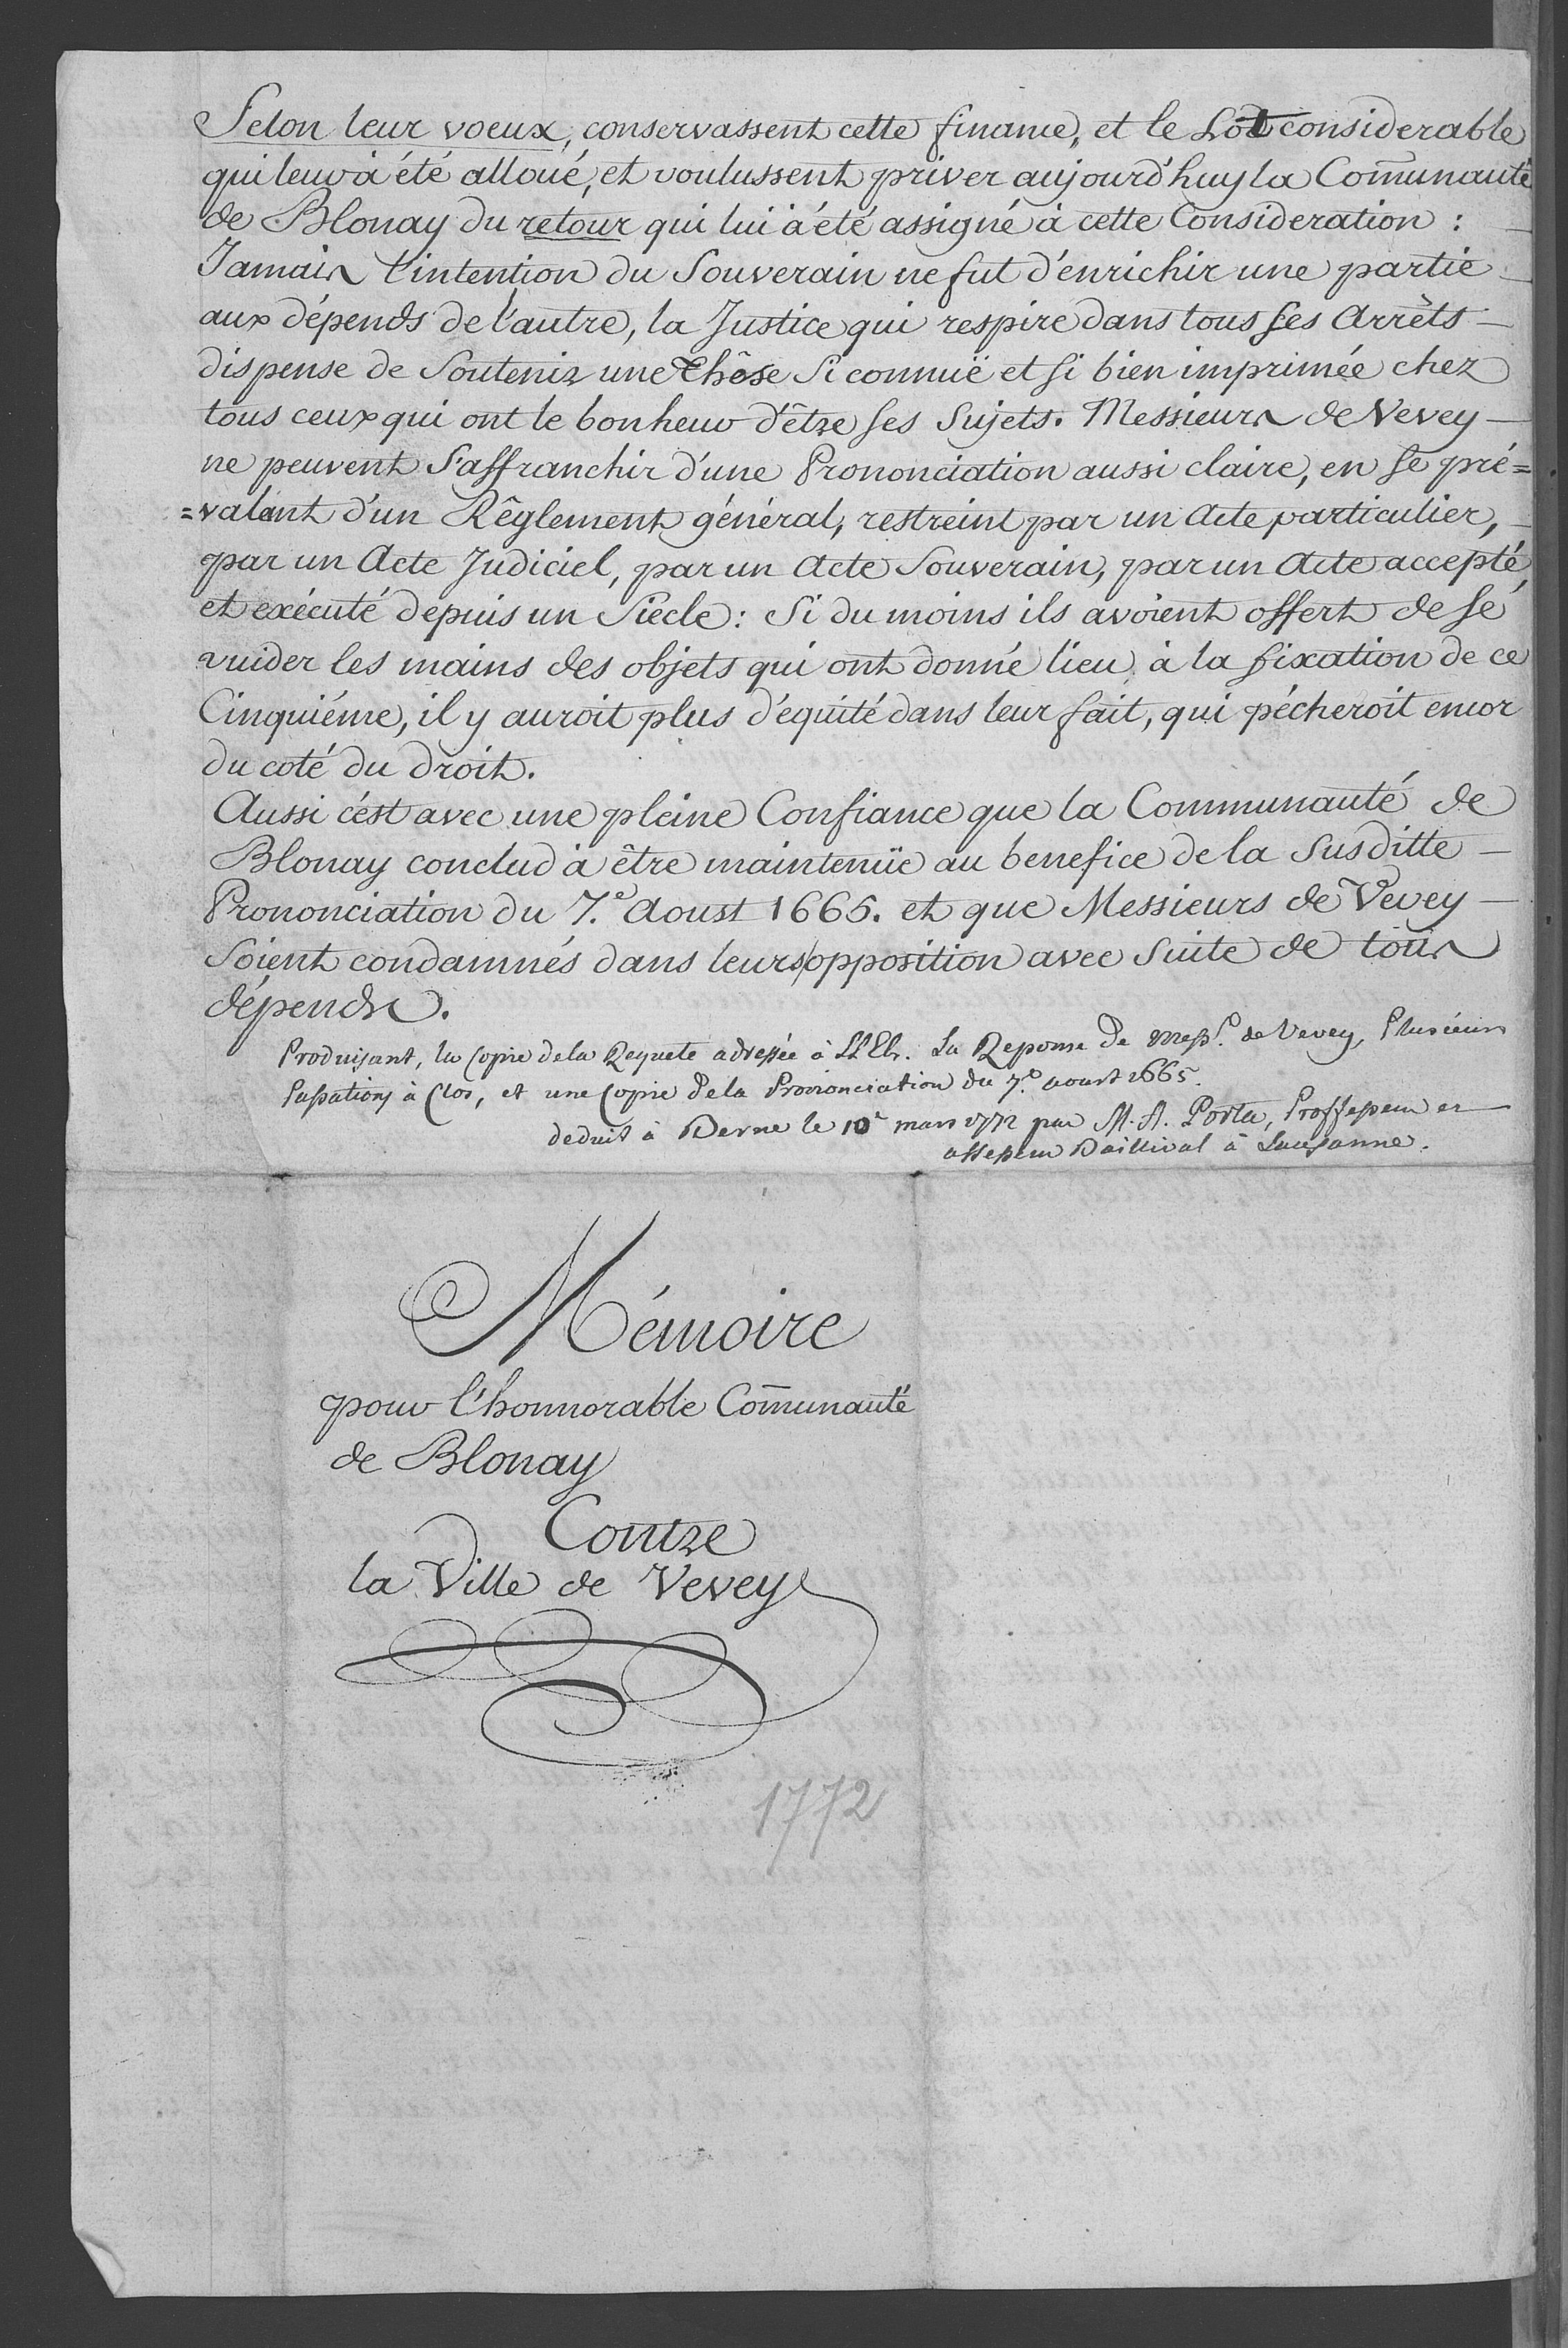 Selon leur voeux, conservassent cette finance, et le Lot considerable
qui leur a été alloué, et voulussent priver aujourd'huy la Com̄unauté
de Blonay du retour qui lui à été assigné à cette Consideration :
Jamais l'intention du Souverain ne fut d'enrichir une partie
aux dépends de l'autre, la Justice qui respire dans tous ses Arrêts
dispense de Soutenir une Thôse Si connuë et si bien imprimée chez
tous ceux qui ont le bonheur d'être ses Sujets. Messieurs de Vevey
ne peuvent S'affranchir d'une Prononciation aussi claire, en se pré=
=valant d'un Rêglement général, restreint par un Acte particulier,
par un Acte Judiciel, par un Acte Souverain, par un Acte accepté,
et exécuté depuis un Siecle : Si du moins ils avoient offert de se
vuider les mains des objets qui ont donné lieu à la fixation de ce
Cinquiéme, il y auroit plus d'equité dans leur fait, qui pécheroit encor
du coté du droit.
Aussi c'est avec une pleine Confiance que la Communauté de
Blonay conclud à être maintenüe au benefice de la Susditte
Prononciation du 7.e Aoust 1665. et que Messieurs de Vevey
Soient condamnés dans leurs opposition avec Suite de tous
dépends.
Produisant, la Copie de la Requete adressée à LL EE. La Reponse de Mess.rs de Vevey, Plusieurs
Passations à Clos, et une Copie de la Prononciation du 7.e aoust 1665.
deduit à Berne le 10e mars 1772 par M. A. Porta, Professeur et
assesseur Baillival à Lausanne.
Mémoire
pour l'honnorable Com̄unauté
de Blonay
Contre
la Ville de Vevey
1772